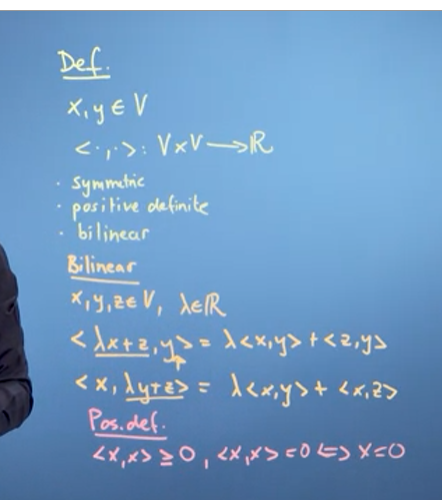 Def.
x, y ∈ V
<·,·>: V×V → ℝ
· symmetric
· positive definite
· bilinear
Bilinear
x, y, z ∈ V, λ ∈ ℝ
<λx+z, y> = λ<x,y> + <z,y>
<x, λy+z> = λ<x,y> + <x,z>
Pos. def.
<x,x> ≥ 0, <x,x> = 0 ⇔ x = 0